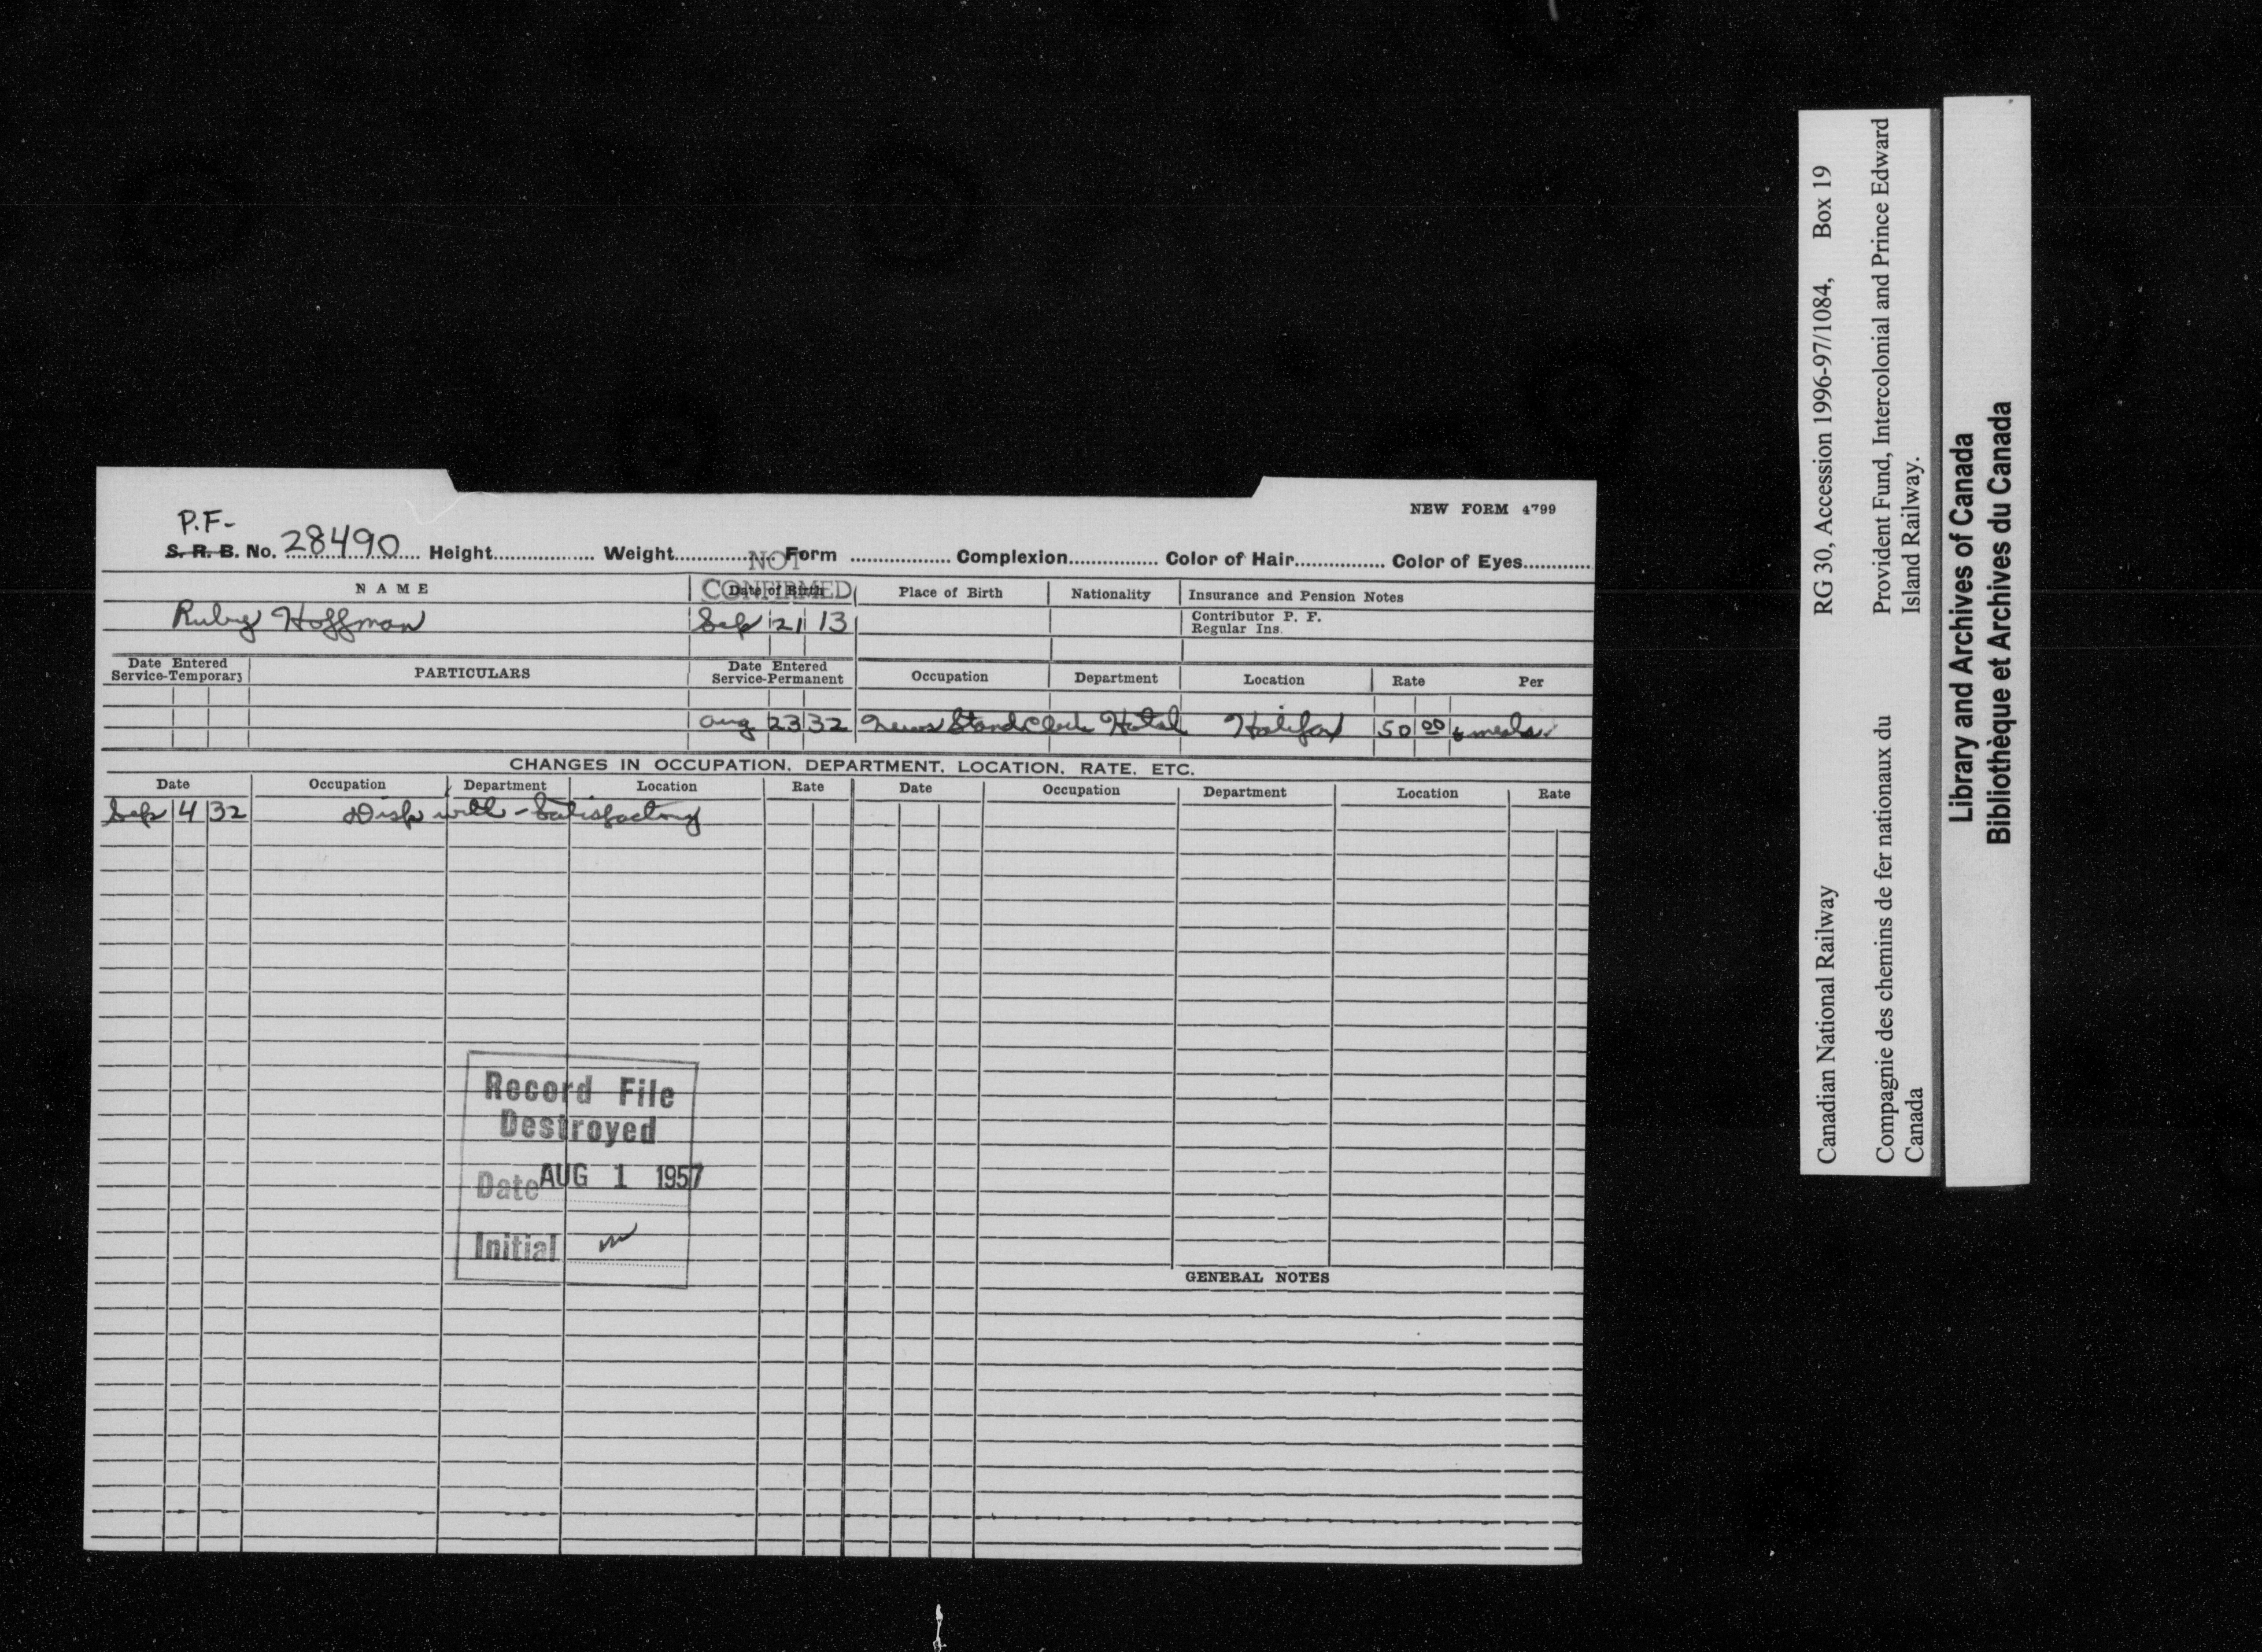 NEW FORM 4799
P.F-
S. R. B. No. 28490 Height Weight Form Complexion Color of Hair Color of Eyes
NOT
CONFIRMED
NAME Date of Birth Place of Birth Nationality Insurance and Pension Notes
Ruby Hoffman Sep 21 13 Contributor P. F.
Regular Ins.
Date Entered Service-Temporary PARTICULARS Date Entered Service-Permanent Occupation Department Location Rate Per
Aug 23 32 News Stand Clerk Hotel Halifax 50 00 & meals
CHANGES IN OCCUPATION, DEPARTMENT, LOCATION, RATE, ETC.
Date Occupation Department Location Rate Date Occupation Department Location Rate
Sep 4 32 Disp with - Satisfactory
Record File
Destroyed
Date AUG 1 1957
Initial
GENERAL NOTES
Canadian National Railway RG 30, Accession 1996-97/1084, Box 19
Compagnie des chemins de fer nationaux du Provident Fund, Intercolonial and Prince Edward
Canada Island Railway.
Library and Archives of Canada
Bibliothèque et Archives du Canada